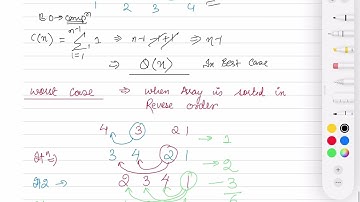 1 2 3 4
BO → Comp^n
C(n) = n-1 Σ i=1 1 ⇒ n-1-1+1 ⇒ n-1
⇒ Ω(n) In Best Case
worst case ⇒ when Array is sorted in
Revese order
4 3 2 1 → 1
3 4 2 1 → 2
2 3 4 1 → 3